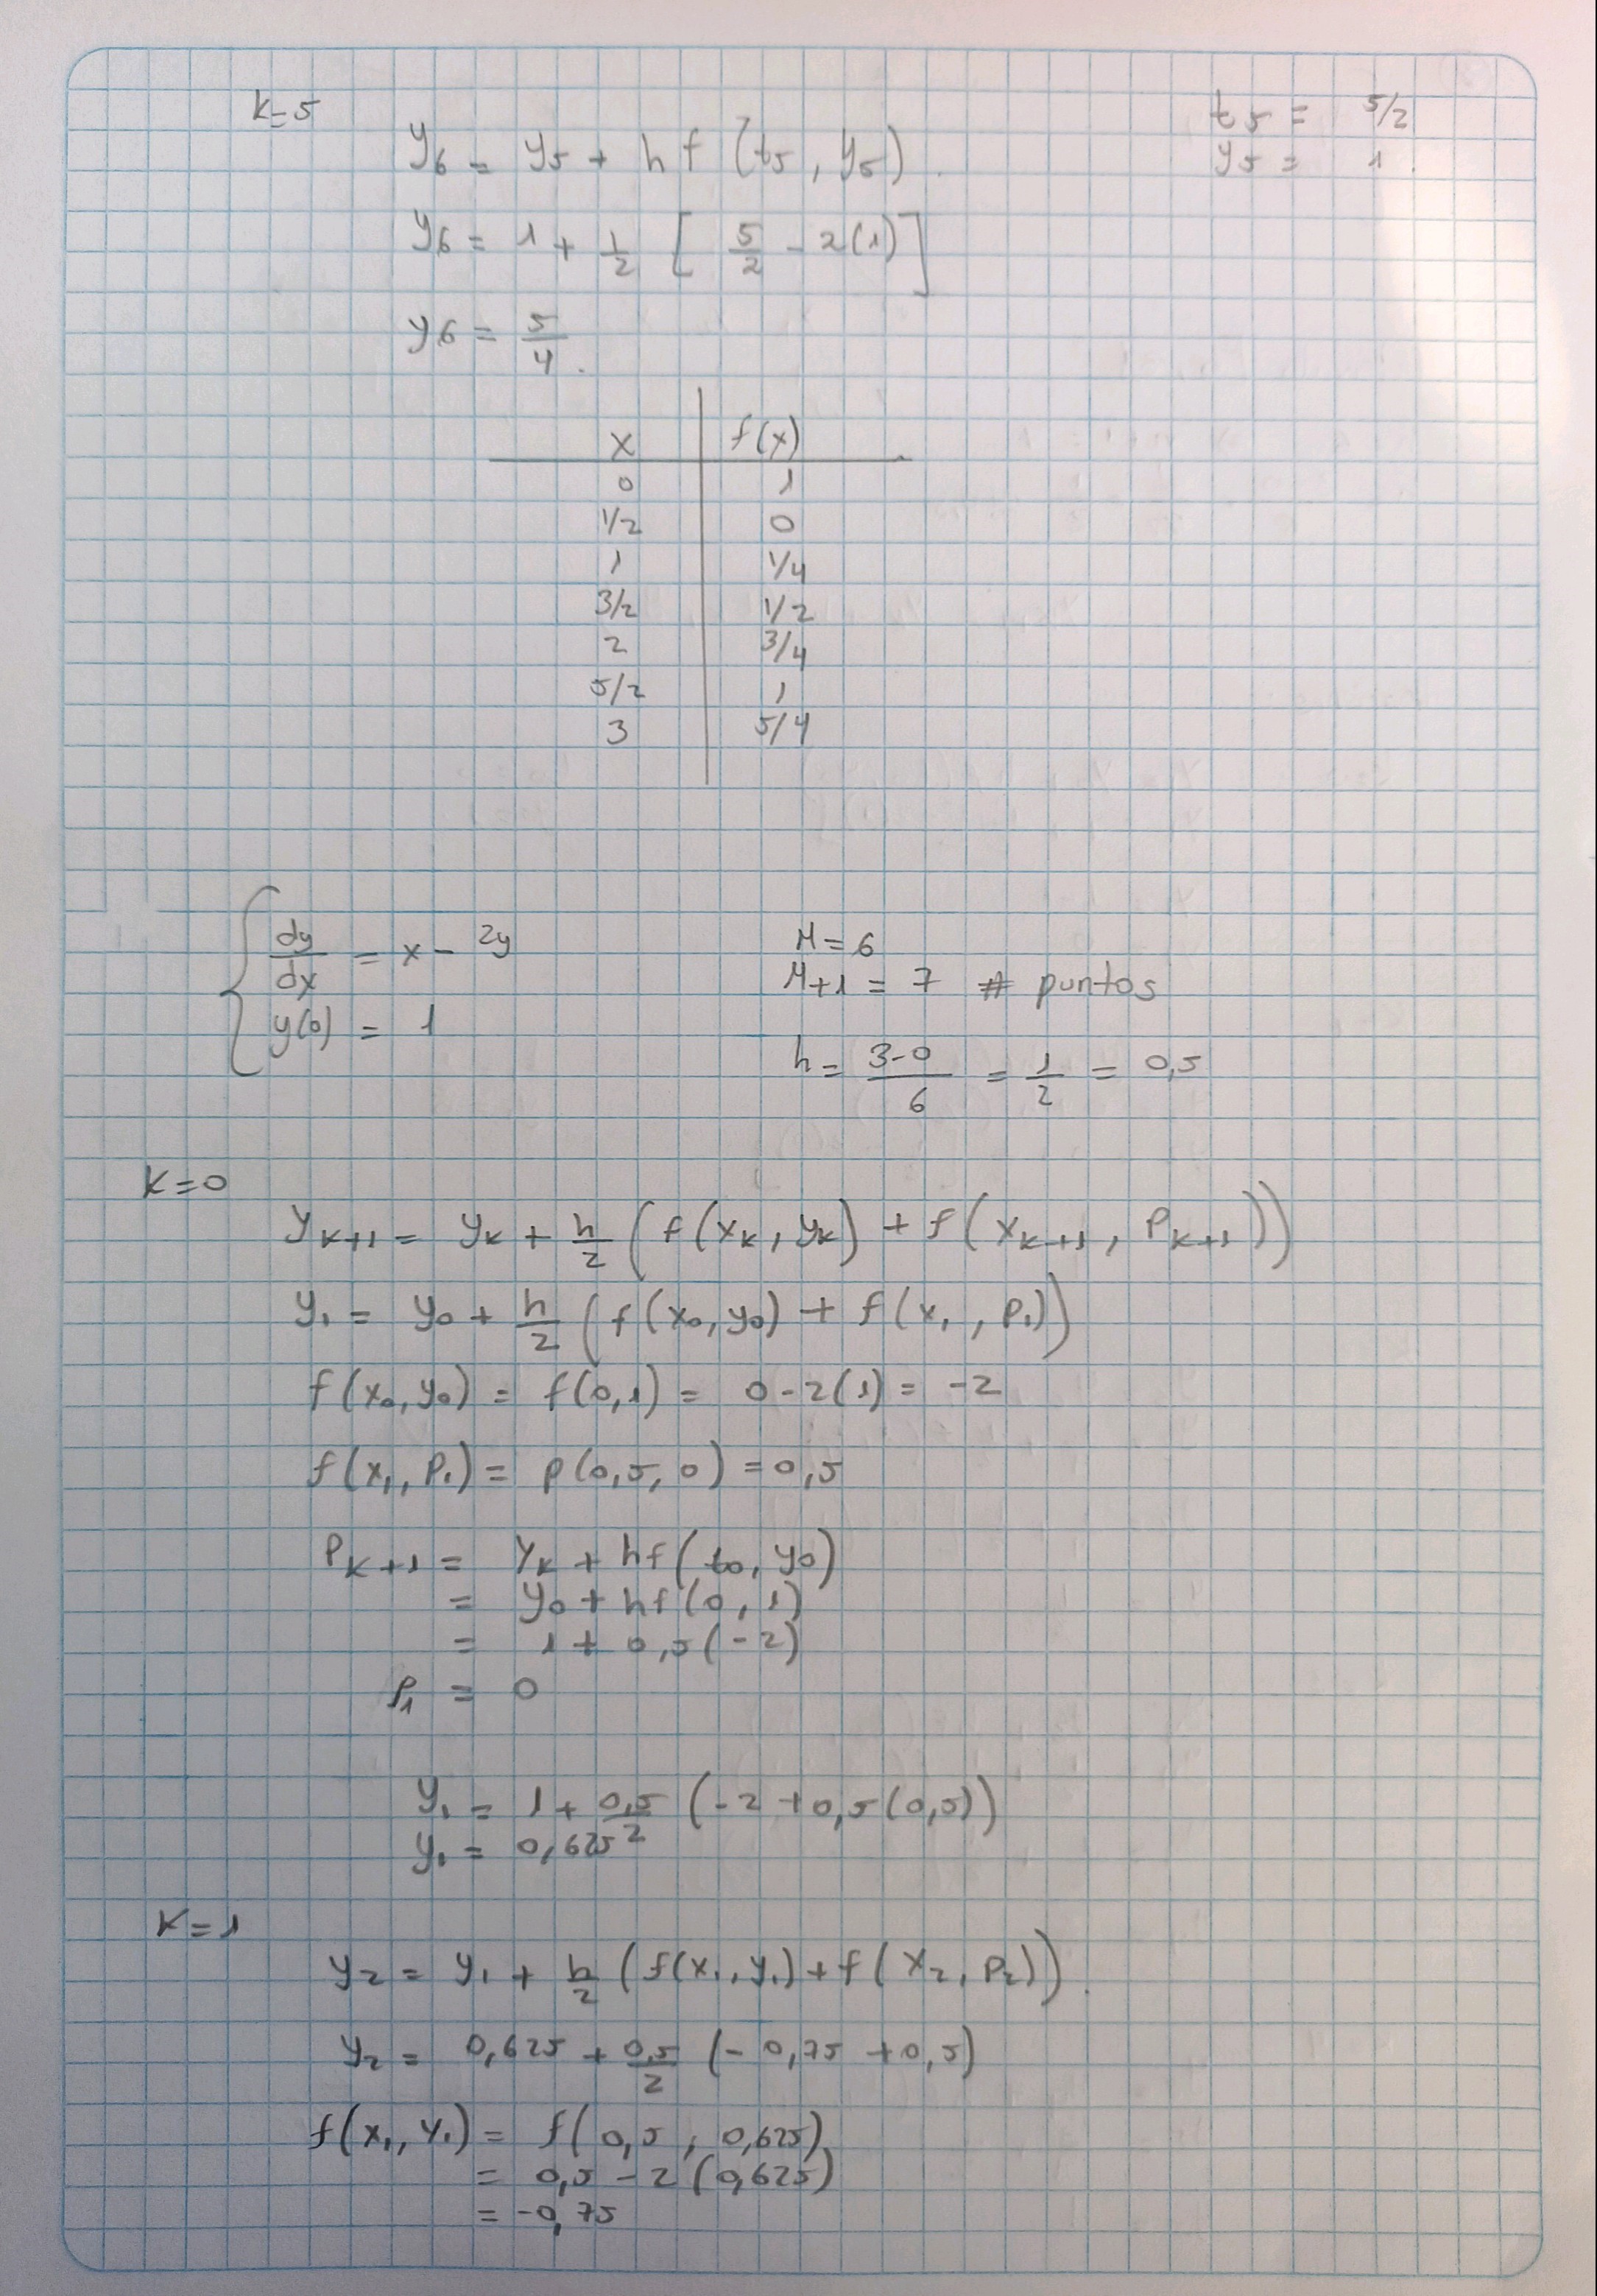 k=5
t5 = 5/2
y6 = y5 + h f (t5, y5).
y5 = 1.
y6 = 1 + 1/2 [ 5/2 - 2(1) ]
y6 = 5/4.
x | f(x)
0 | 1
1/2 | 0
1 | 1/4
3/2 | 1/2
2 | 3/4
5/2 | 1
3 | 5/4
dy/dx = x - 2y
M=6
M+1 = 7 # puntos
y(0) = 1
h = 3-0/6 = 1/2 = 0,5
K=0
yk+1 = yk + h/2 ( f(xk, yk) + f( xk+1, Pk+1))
y1 = y0 + h/2 ( f(x0, y0) + f(x1, p1))
f(x0, y0) = f(0,1) = 0-2(1) = -2
f(x1, P1) = p(0,5, 0) = 0,5
Pk+1 = yk + hf( t0, y0)
= y0 + hf(0, 1)
= 1 + 0,5(-2)
P1 = 0
y1 = 1 + 0,5/2 (-2 + 0,5(0,5))
y1 = 0,625
K=1
y2 = y1 + h/2 ( f(x1, y1) + f( x2, P2)).
y2 = 0,625 + 0,5/2 (- 0,75 + 0,5)
f(x1, y1) = f( 0,5 , 0,625)
= 0,5 - 2 (0,625)
= -0,75